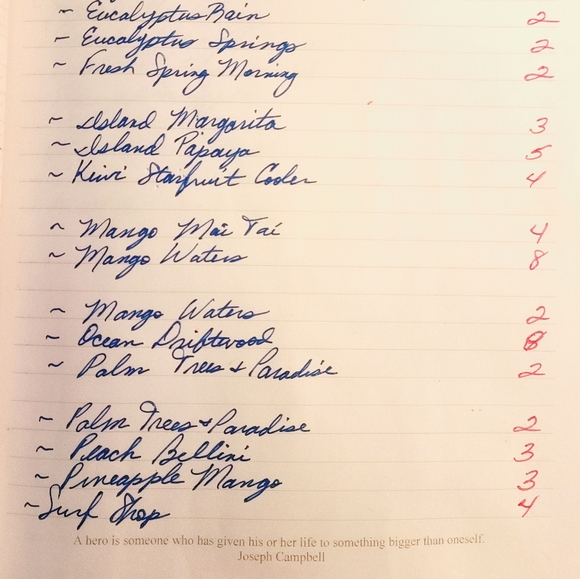 ~ Eucalyptus Rain 2
~ Eucalyptus Springs 2
~ Fresh Spring Morning 2
~ Island Margarita 3
~ Island Papaya 5
~ Kiwi Starfruit Cooler 4
~ Mango Mai Tai 4
~ Mango Waters 8
~ Mango Waters 2
~ Ocean Driftwood 8
~ Palm Trees + Paradise 2
~ Palm Trees + Paradise 2
~ Peach Bellini 3
~ Pineapple Mango 3
~ Surf Shop 4
A hero is someone who has given his or her life to something bigger than oneself.
Joseph Campbell